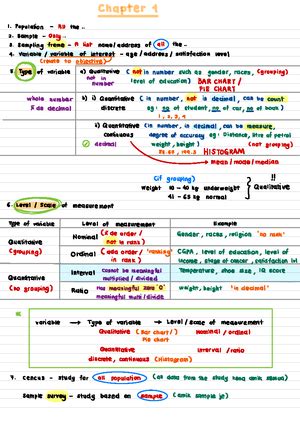 Chapter 1
1. Population - All the .
2. Sample - Only .
3. Sampling frame - A list name/address of all the .
4. Variable / variable of interest - age / address / satisfaction level
(relate to objective)
5. Type of variable
a) Qualitative (not in number such as gender, races, (grouping)
not in number
level of education) BAR CHART /
PIE CHART
whole number
& do decimal
b) i) Quantitative (in number, not in decimal, can be count
discrete
eg: no of student, no of car, no of book)
1, 2, 3, 4
ii) Quantitative (in number, in decimal, can be measure,
continuous
degree of accuracy eg: Distance, litre of petrol
decimal
weight, height) (not grouping)
HISTOGRAM
mean / mode / median
(if grouping)
weight 10 - 40 kg underweight
41 - 65 kg normal
Qualitative !!
6. Level / Scale of measurement
Type of variable
Level of measurement
Example
Qualitative
(grouping)
Nominal
not in rank)
Gender, races, religion "no rank"
Ordinal
"ranking"
in rank)
CGPA, level of education, level of
income, stage of cancer, satisfaction lvl
Quantitative
(no grouping)
Interval
cannot be meaningful
multiplied / divided
Temperature, shoe size, IQ score
Ratio
has meaningful zero '0'
meaningful multi / divide
weight, height "in decimal"
variable → Type of variable → Level / Scale of measurement
Qualitative (Bar chart / Pie chart
Nominal / ordinal
Quantitative
discrete, continuous (Histogram)
Interval / ratio
7. Census - study for all population
Sample survey - study based on sample (amik sample je)